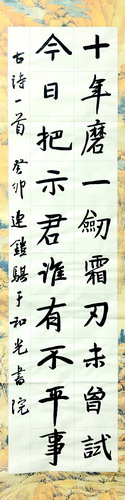 十年磨一劒霜刃未曾試
今日把示君誰有不平事
古詩一首 癸卯 連鎧騏于和光書院